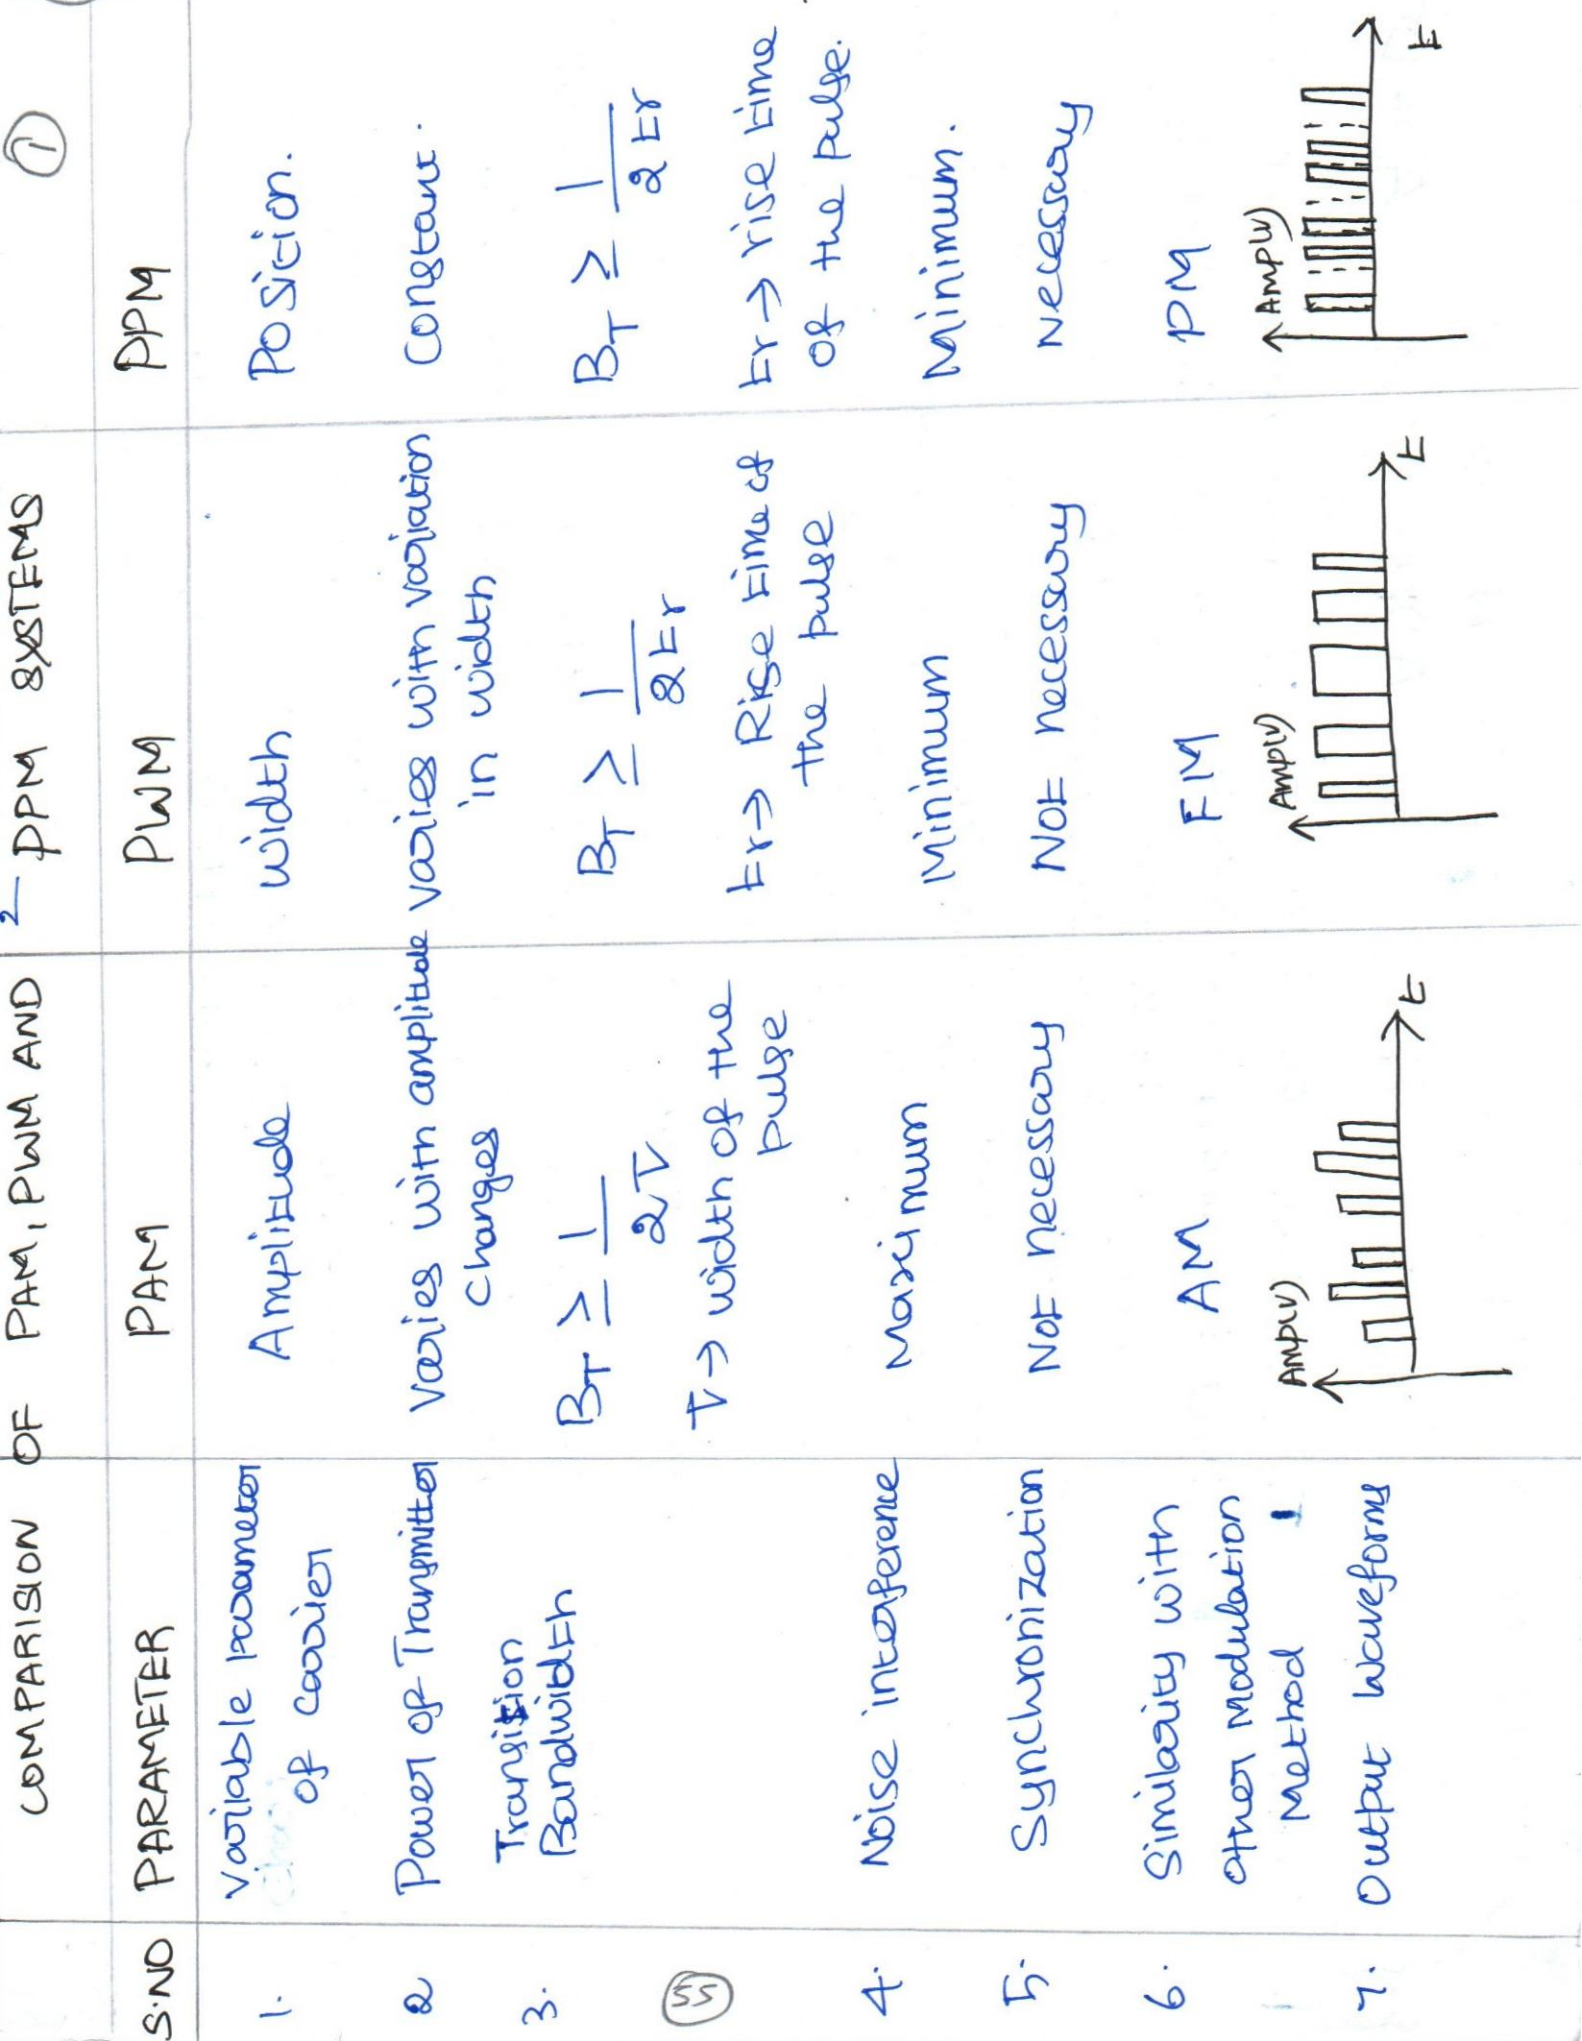 ①
COMPARISION OF PAM, PWM AND PPM SYSTEMS
S.NO PARAMETER PAM PWM PPM
1. Variable parameter of carrier Amplitude Width Position.
2 Power of Transmitter Varies with amplitude changes varies with variation in width Constant.
3. Transition Bandwidth B_T ≥ 1/2τ B_T ≥ 1/2tr B_T ≥ 1/2tr
τ → width of the pulse tr → Rise time of the pulse tr → rise time of the pulse.
55
4. Noise interference Maximum Minimum Minimum.
5. Synchronization Not necessary Not necessary necessary
6. Similarity with other Modulation Method AM FM PM
7. Output Waveforms Amp(v) t Amp(v) t Amp(v) t